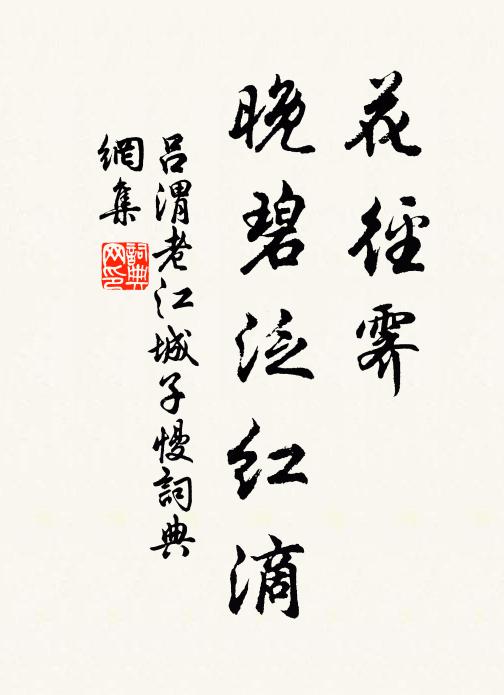 花徑霽
晚碧泛紅滴
呂渭老江城子慢詞典
網集
詞典
网印